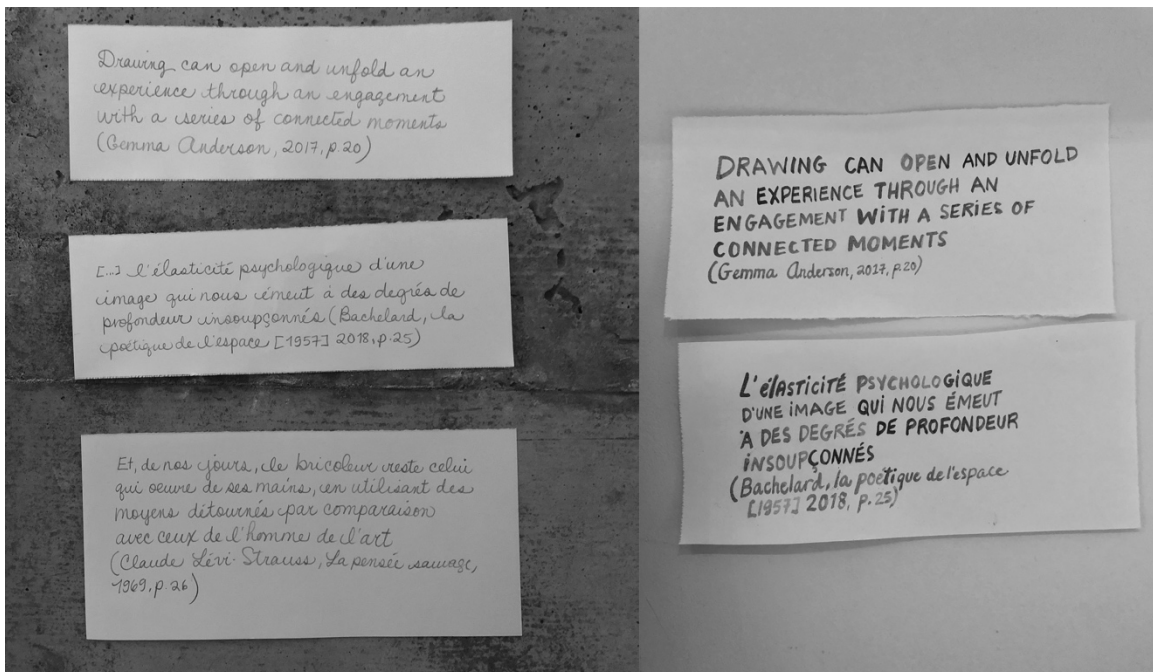 Drawing can open and unfold an
experience through an engagement
with a series of connected moments
(Gemma Anderson, 2017, p.20)
[...] l'élasticité psychologique d'une
image qui nous émeut à des degrés de
profondeur insoupçonnés (Bachelard, la
poétique de l'espace [1957] 2018, p.25)
Et, de nos jours, le bricoleur reste celui
qui oeuvre de ses mains, en utilisant des
moyens détournés par comparaison
avec ceux de l'homme de l'art
(Claude Lévi-Strauss, La pensée sauvage,
1969, p.26)
DRAWING CAN OPEN AND UNFOLD
AN EXPERIENCE THROUGH AN
ENGAGEMENT WITH A SERIES OF
CONNECTED MOMENTS
(Gemma Anderson, 2017, p.20)
L'éLASTICITÉ PSYCHOLOGIQUE
D'UNE IMAGE QUI NOUS ÉMEUT
À DES DEGRÉS DE PROFONDEUR
INSOUPÇONNÉS
(Bachelard, la poétique de l'espace
[1957] 2018, p.25)